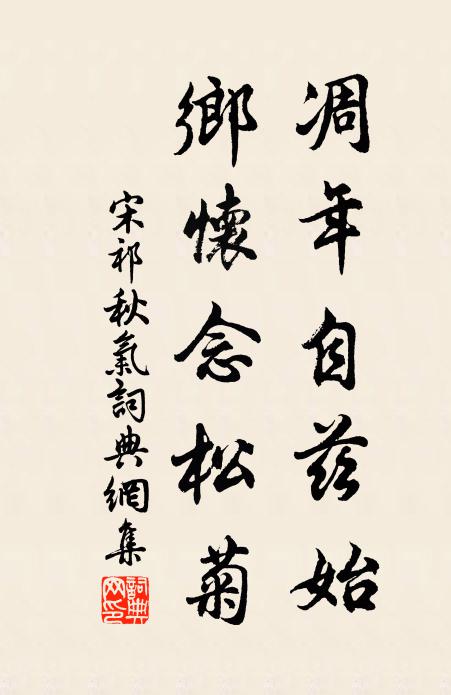 凋年自茲始
鄉懷念松菊
宋祁秋氣詞典網集
詞典網印